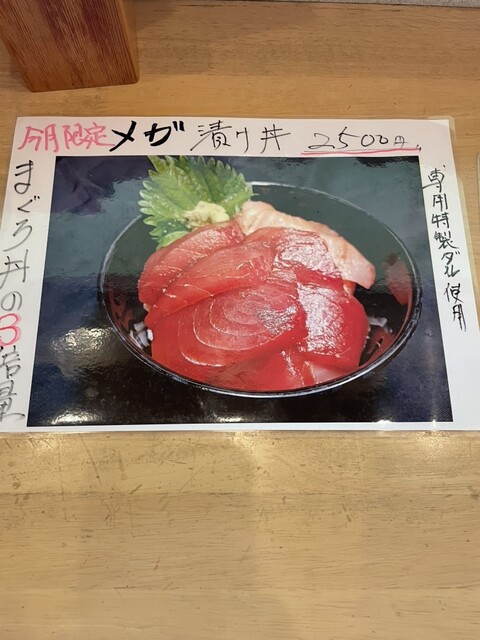 今月限定 メガ 漬け丼 2500円
まぐろ丼の3倍量
専用特製ダレ使用